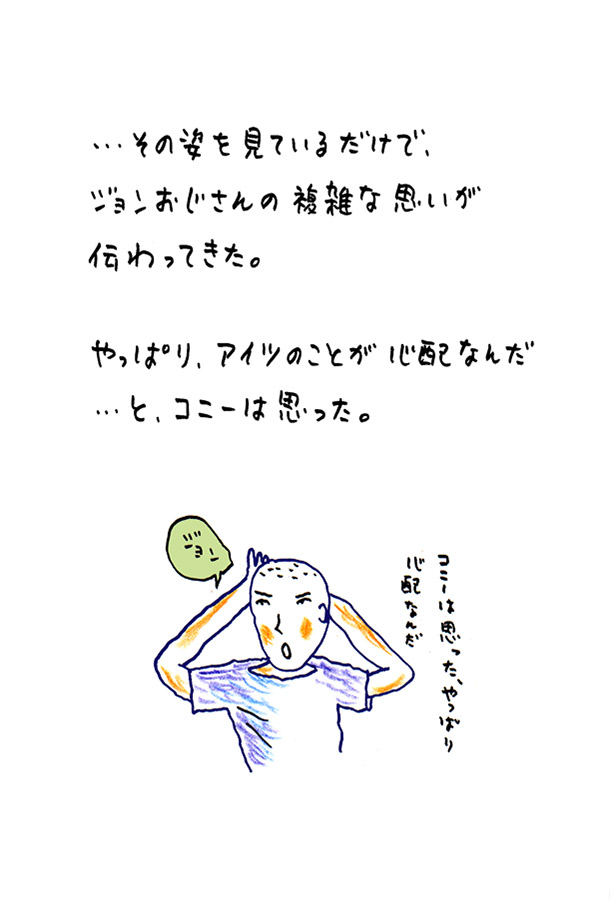 …その姿を見ているだけで、
ジョンおじさんの複雑な思いが
伝わってきた。
やっぱり、アイツのことが心配なんだ
…と、コニーは思った。
ジョン
コニーは思った、やっぱり
心配なんだ